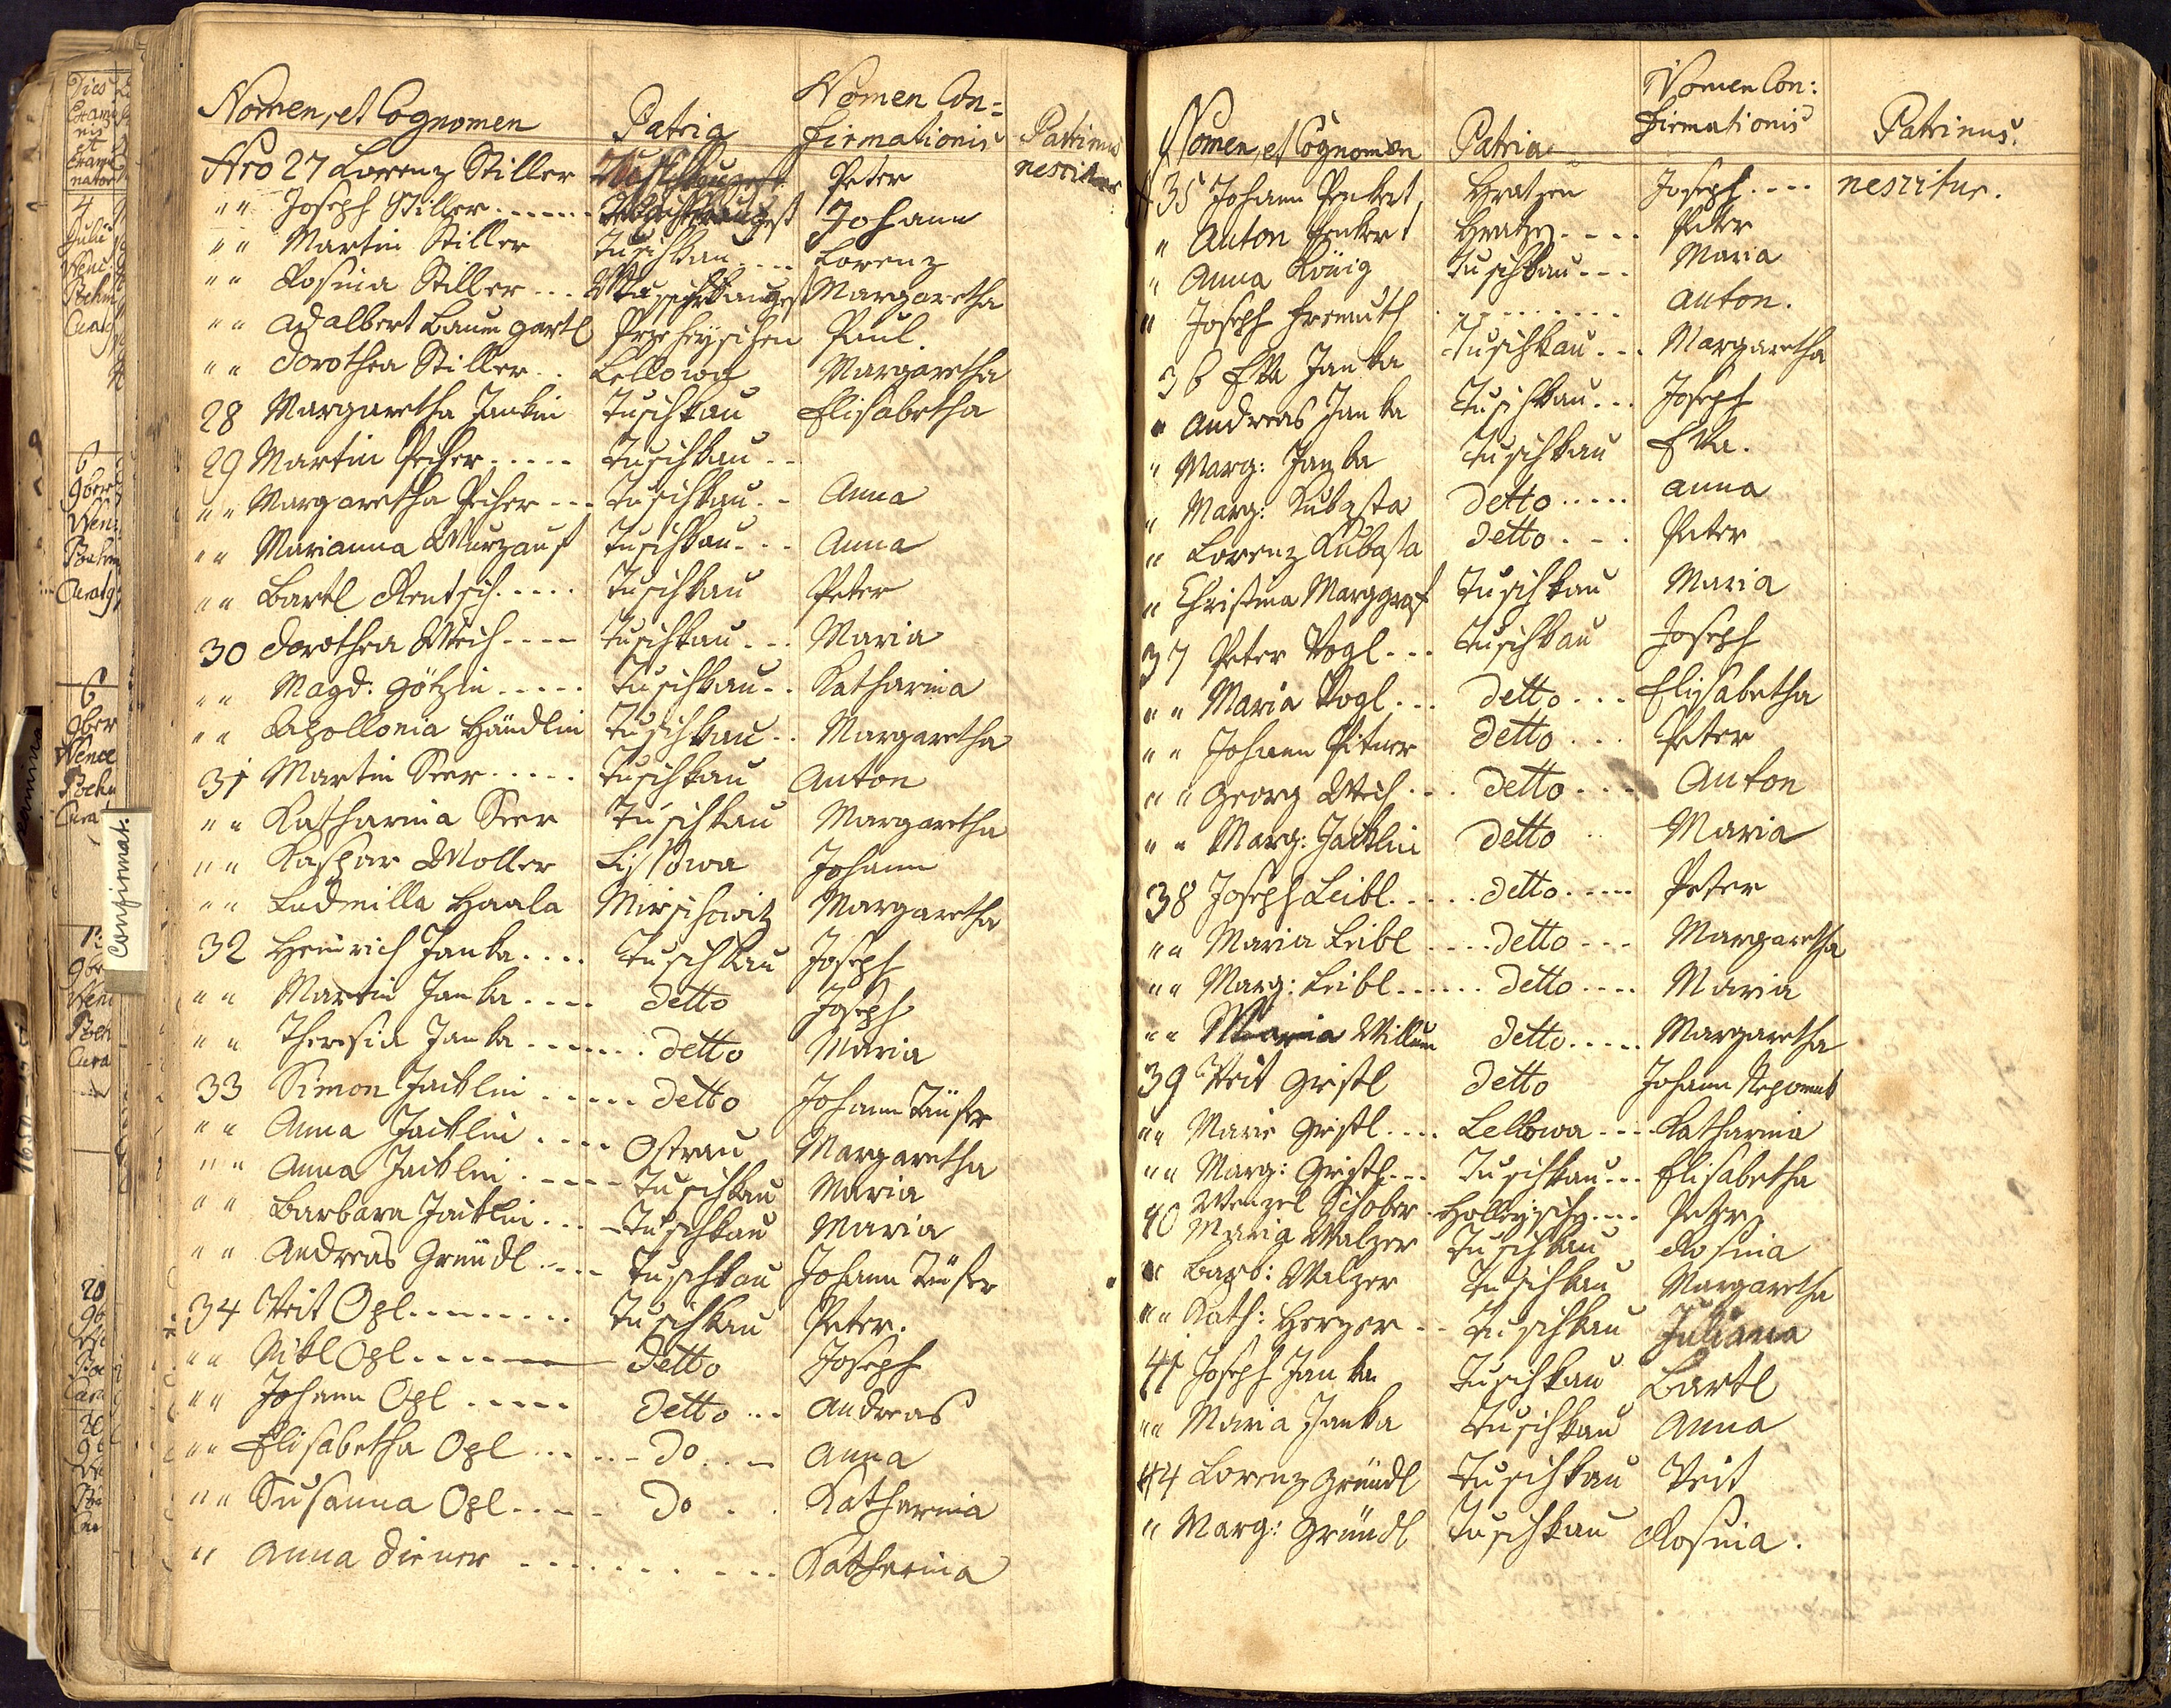 Nomen, et Cognomen Patria Nomen Con=
firmationis Patrinus
Nro 27 Lorenz Stiller Peter nescitur
"" Joseph Stiller Johann
"" Martin Stiller Tuschkau Lorenz
"" Rosina Stiller Margaretha
"" Adalbert Baumgartl Paul.
"" Dorothea Stiller Lellowa Margaretha
28 Margaretha Jankin Tuschkau Elisabetha
29 Martin Pecher Tuschkau
"" Margaretha Pecher Tuschkau Anna
"" Marianna Tuschkau Anna
"" Bartl Rentsch Tuschkau Peter
30 Dorothea Weich Tuschkau Maria
"" Magd: Götzin Tuschkau Katharina
"" Apollonia Händlin Tuschkau Margaretha
31 Martin Seer Tuschkau Anton
"" Katharina Seer Tuschkau Margaretha
"" Kaspar Woller Listowa Johann
"" Ludmilla Haala Mirschowitz Margaretha
32 Heinrich Janka Tuschkau Joseph
"" Martin Janka detto Joseph
"" Theresia Janka detto Maria
33 Simon Jacklin detto Johann Täufer
"" Anna Jacklin Ostrau Margaretha
"" Anna Jacklin Tuschkau Maria
"" Barbara Jacklin Tuschkau Maria
"" Andreas Gründl Tuschkau Johann Täufer
34 Veit Opl Tuschkau Peter.
"" Opl detto Joseph
"" Johann Opl detto Andreas
"" Elisabetha Opl do Anna
"" Susanna Opl do Katharina
" Anna Diener Katharina
Confirmat.
Nomen, et Cognomen Patria Nomen Con:
firmationis Patrinus.
35 Johann Penkert Hratzen Joseph nescitur.
" Anton Penkert Hratzen Peter
" Anna König Tuschkau Maria
" Joseph Fremuth Anton.
36 Eva Janka Tuschkau Margaretha
" Andreas Janka Tuschkau Joseph
" Marg: Janka Tuschkau Eva.
" Marg: Kubasta detto Anna
" Lorenz Kubasta detto Peter
" Christina Marggraf Tuschkau Maria
37 Peter Vogl Tuschkau Joseph
"" Maria Vogl detto Elisabetha
"" Johann Pitner detto Peter
"" Georg Weich detto Anton
"" Marg: Jacklin detto Maria
38 Joseph Leibl detto Peter
"" Maria Leibl detto Margaretha
"" Marg: Leibl detto Maria
"" Maria Willum detto Margaretha
39 Veit Gristl detto Johann Nepomuk
"" Marie Gristl Lellowa Katharina
"" Marg: Gristl Tuschkau Elisabetha
40 Wenzel Schober Holleyschen Peter
Maria Walzer Tuschkau Rosina
" Barb: Walzer Tuschkau Margaretha
"" Kath: Herzer Tuschkau Juliana
41 Joseph Janka Tuschkau Bartl
"" Maria Janka Tuschkau Anna
44 Lorenz Gründl Tuschkau Veit
" Marg: Gründl Tuschkau Rosina.